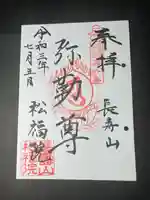 奉拝
長寿山
弥勒尊
令和三年
七月五日
松福院